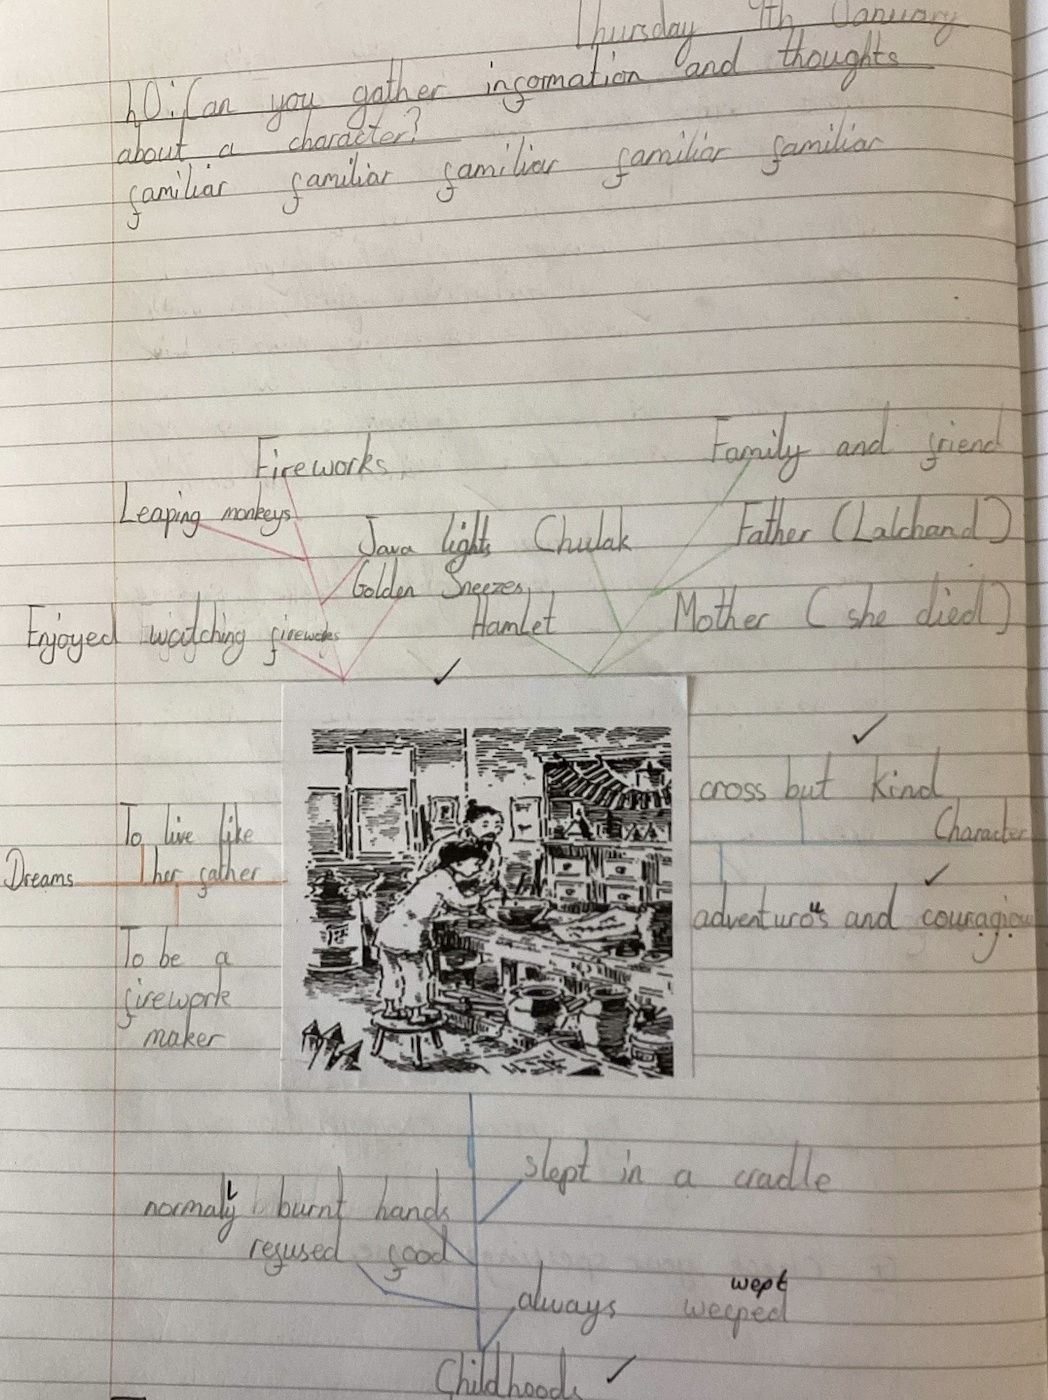 Thursday 9th January
LO: Can you gather information and thoughts
about a character?
familiar familiar familiar familiar familiar
Fireworks
Family and friend
Leaping monkeys
Java lights
Chulak
Father (Lalchand)
Golden Sneezes
Hamlet
Mother (she died)
Enjoyed watching fireworks
cross but kind
Character
To live like
her father
Dreams
adventuro^us and couragiou
To be a
firework
maker
slept in a cradle
normaly burnt hands
l
refused food
wept
always weeped
Childhood